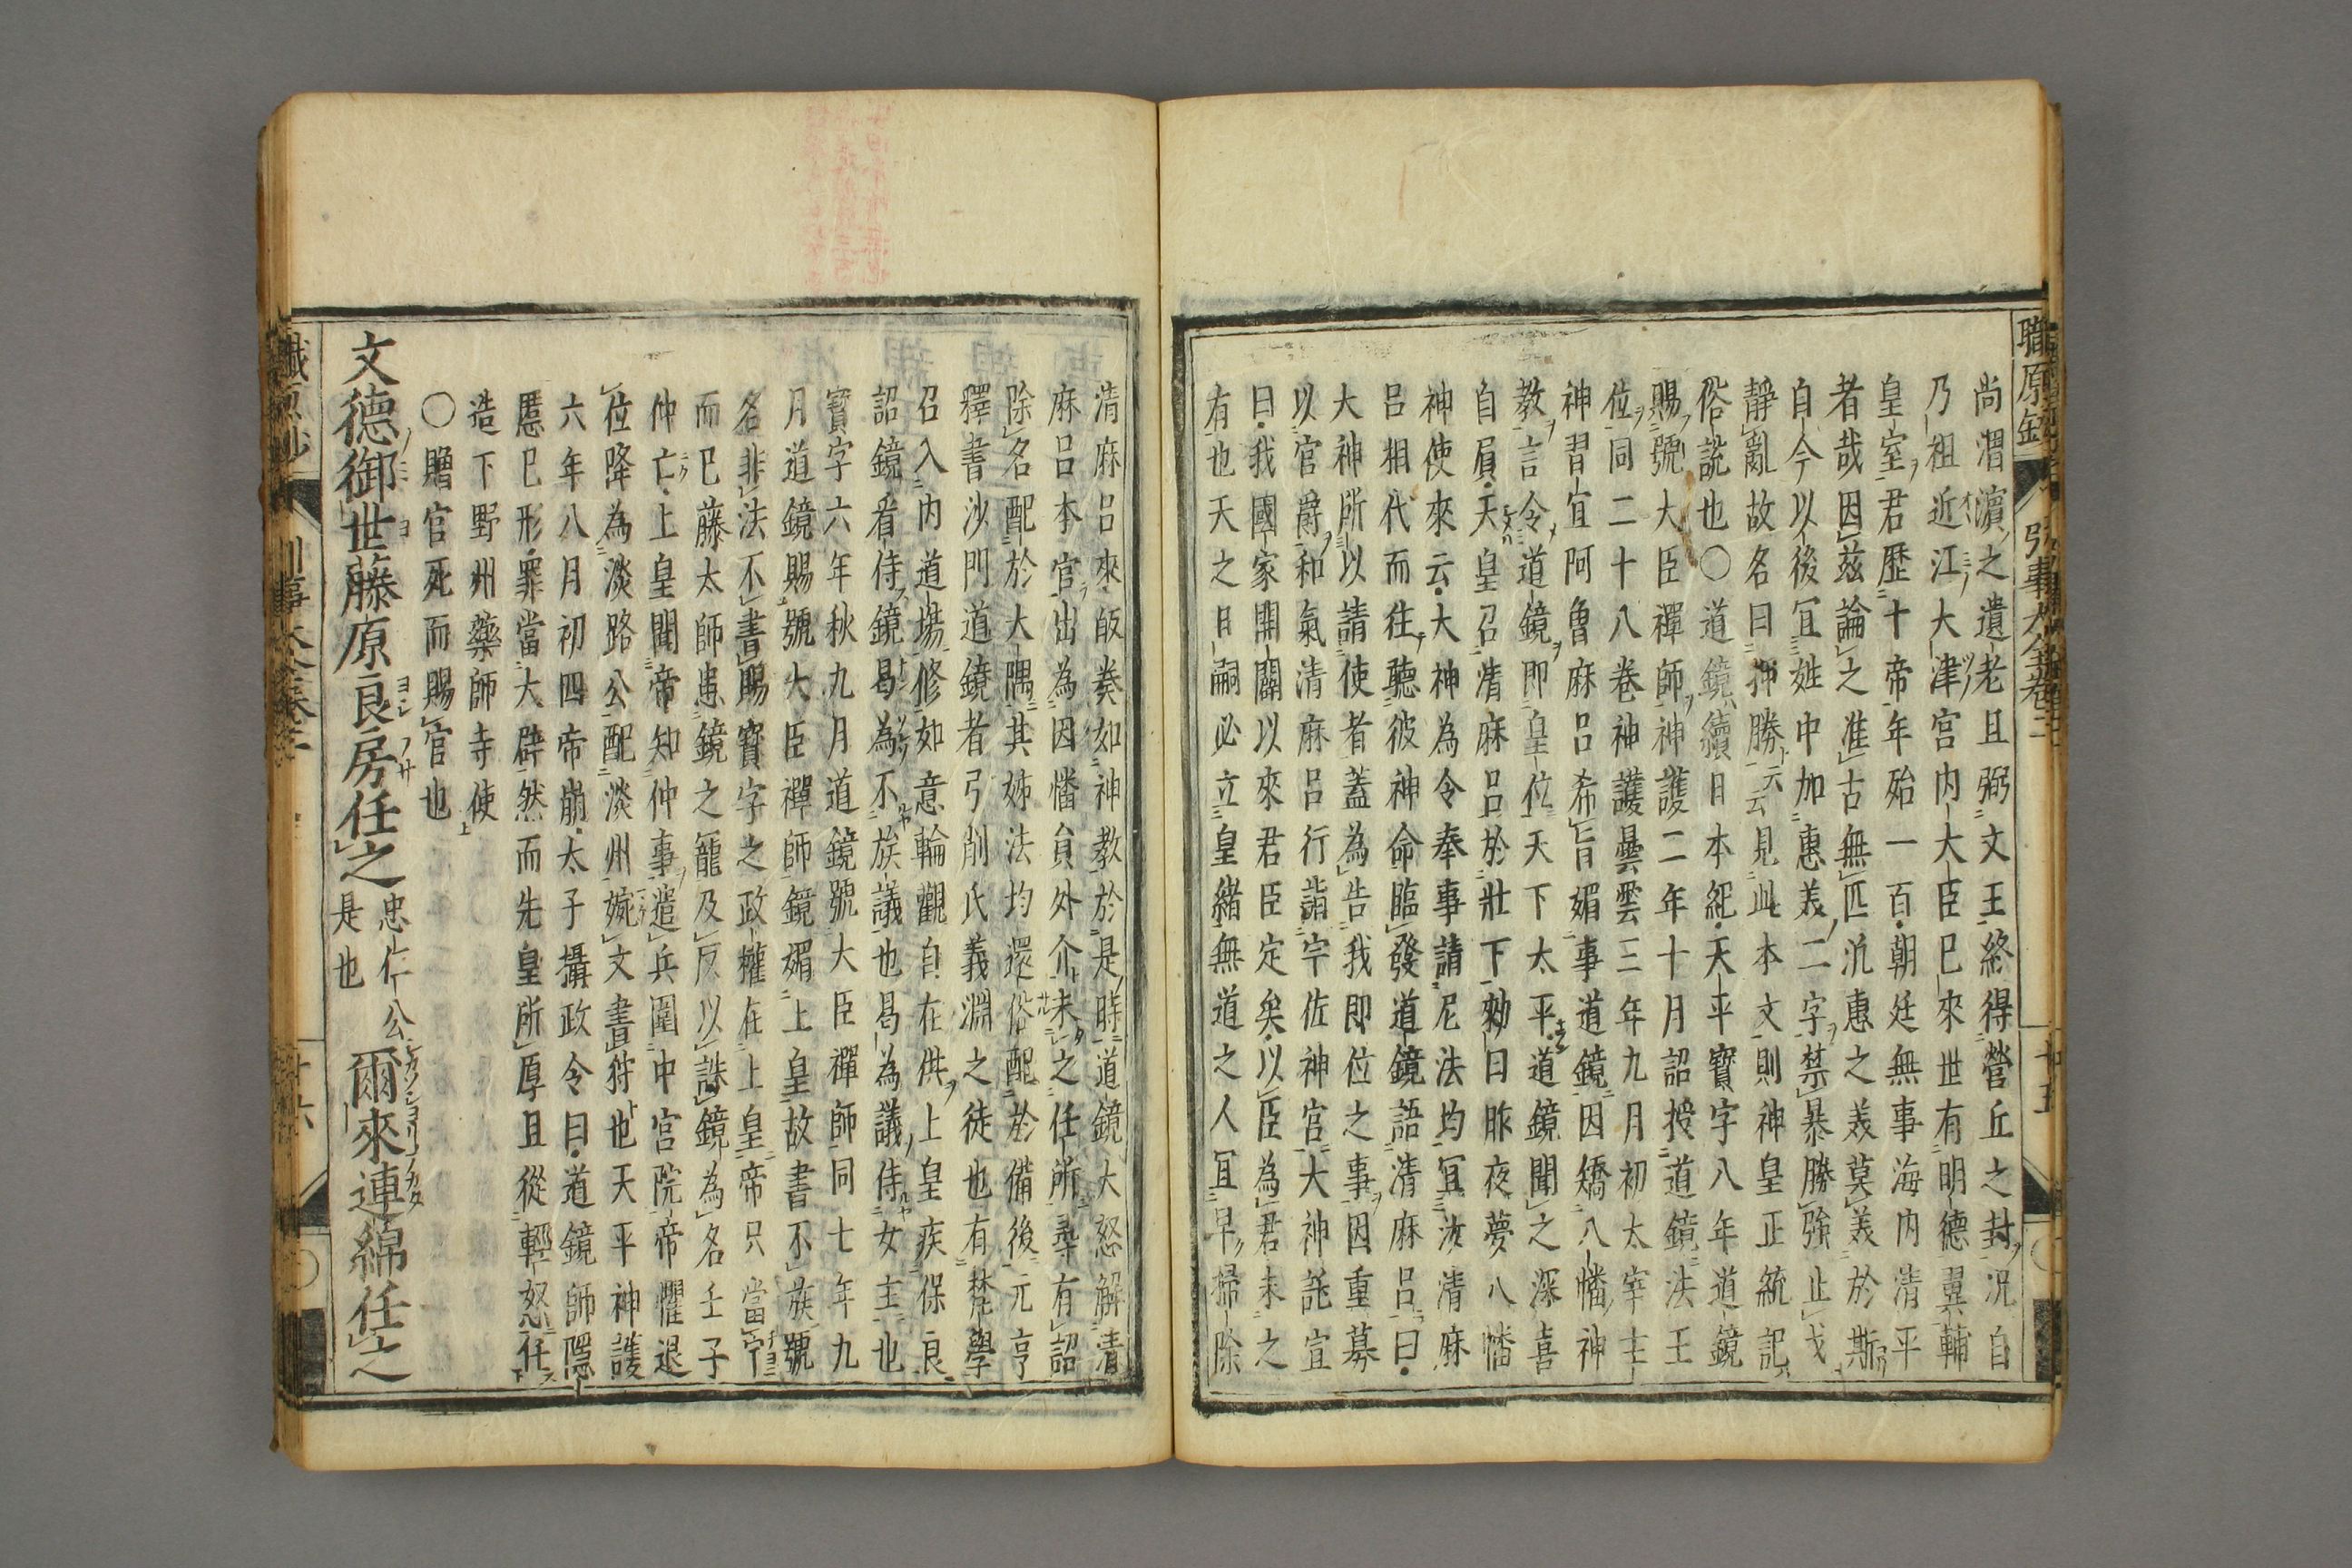 尚渭濵之遺老且弼文王終得營丘之封況自
乃祖近江大津宮内大臣巳來世有明德翼輔
皇室君歴十帝年殆一百朝廷無事海内清平
者哉因茲論之准古無匹汎惠之美莫美於斯
自今以後冝姓中加惠美二字禁暴勝強止戈
靜亂故名曰押勝云云見此本文則神皇正統記
俗說也〇道鏡續日本紀天平寶字八年道鏡
賜號大臣禪師神護二年十月詔授道鏡法王
位同二十八卷神護曇雲三年九月初太宰主
神習冝阿曾麻呂希旨媚事道鏡因矯八幡神
教言令道鏡即皇位天下太平道鏡聞之深喜
自負天皇召清麻呂於牀下勑曰昨夜夢八幡
神使來云大神為令奉事請尼法均冝汝清麻
呂相代而徃聽彼神命臨發道鏡語清麻呂曰
大神所以請使者蓋為告我即位之事因重募
以官爵和氣清麻呂行詣宇佐神宮大神託宣
曰我國家開闢以來君臣定矣以臣為君未之
有也天之日嗣必立皇緒無道之人冝早掃除
清麻呂來皈奏如神教於是時道鏡大怒解清
麻呂本官出為因幡員外介未之任所尋有詔
除名配於大隅其姊法均還俗配於備後元亨
釋書沙門道鏡者弓削氏義淵之徒也有梵學
召入内道場修如意輪觀自在供上皇疾保良
詔鏡看侍鏡曷為不族議也曷為議侍女主也
寶字六年秋九月道鏡號大臣禪師同七年九
月道鏡賜號大臣禪師鏡媚上皇故書不族號
名非法不書賜寶字之政權在上皇帝只當宁
而巳藤太師恚鏡之寵及反以誅鏡為名壬子
仲亡上皇聞帝知仲事遣兵圍中宮院帝懼退
位降為淡路公配淡州婉文書狩也天平神護
六年八月初四帝崩太子攝政令曰道鏡師隱
慝巳形罪當大辟然而先皇所厚且從輕怒任
造下野州藥師寺使
〇贈官死而賜官也
文德御世藤原良房任之忠仁公是也爾來連綿任之
職原鈔 引事大全卷三 十五
職原鈔 引事大全卷三 十六